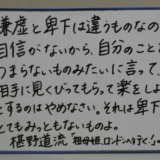 謙虚と卑下は違うものなの
自信がないから、自分のこと
つまらないものみたいに言って、
相手に見くびってもらって楽をしよ
とするのはやめなさい。それは卑下
とてもみっともないものよ。
椹野道流「祖母姫、ロンドンへ行く!